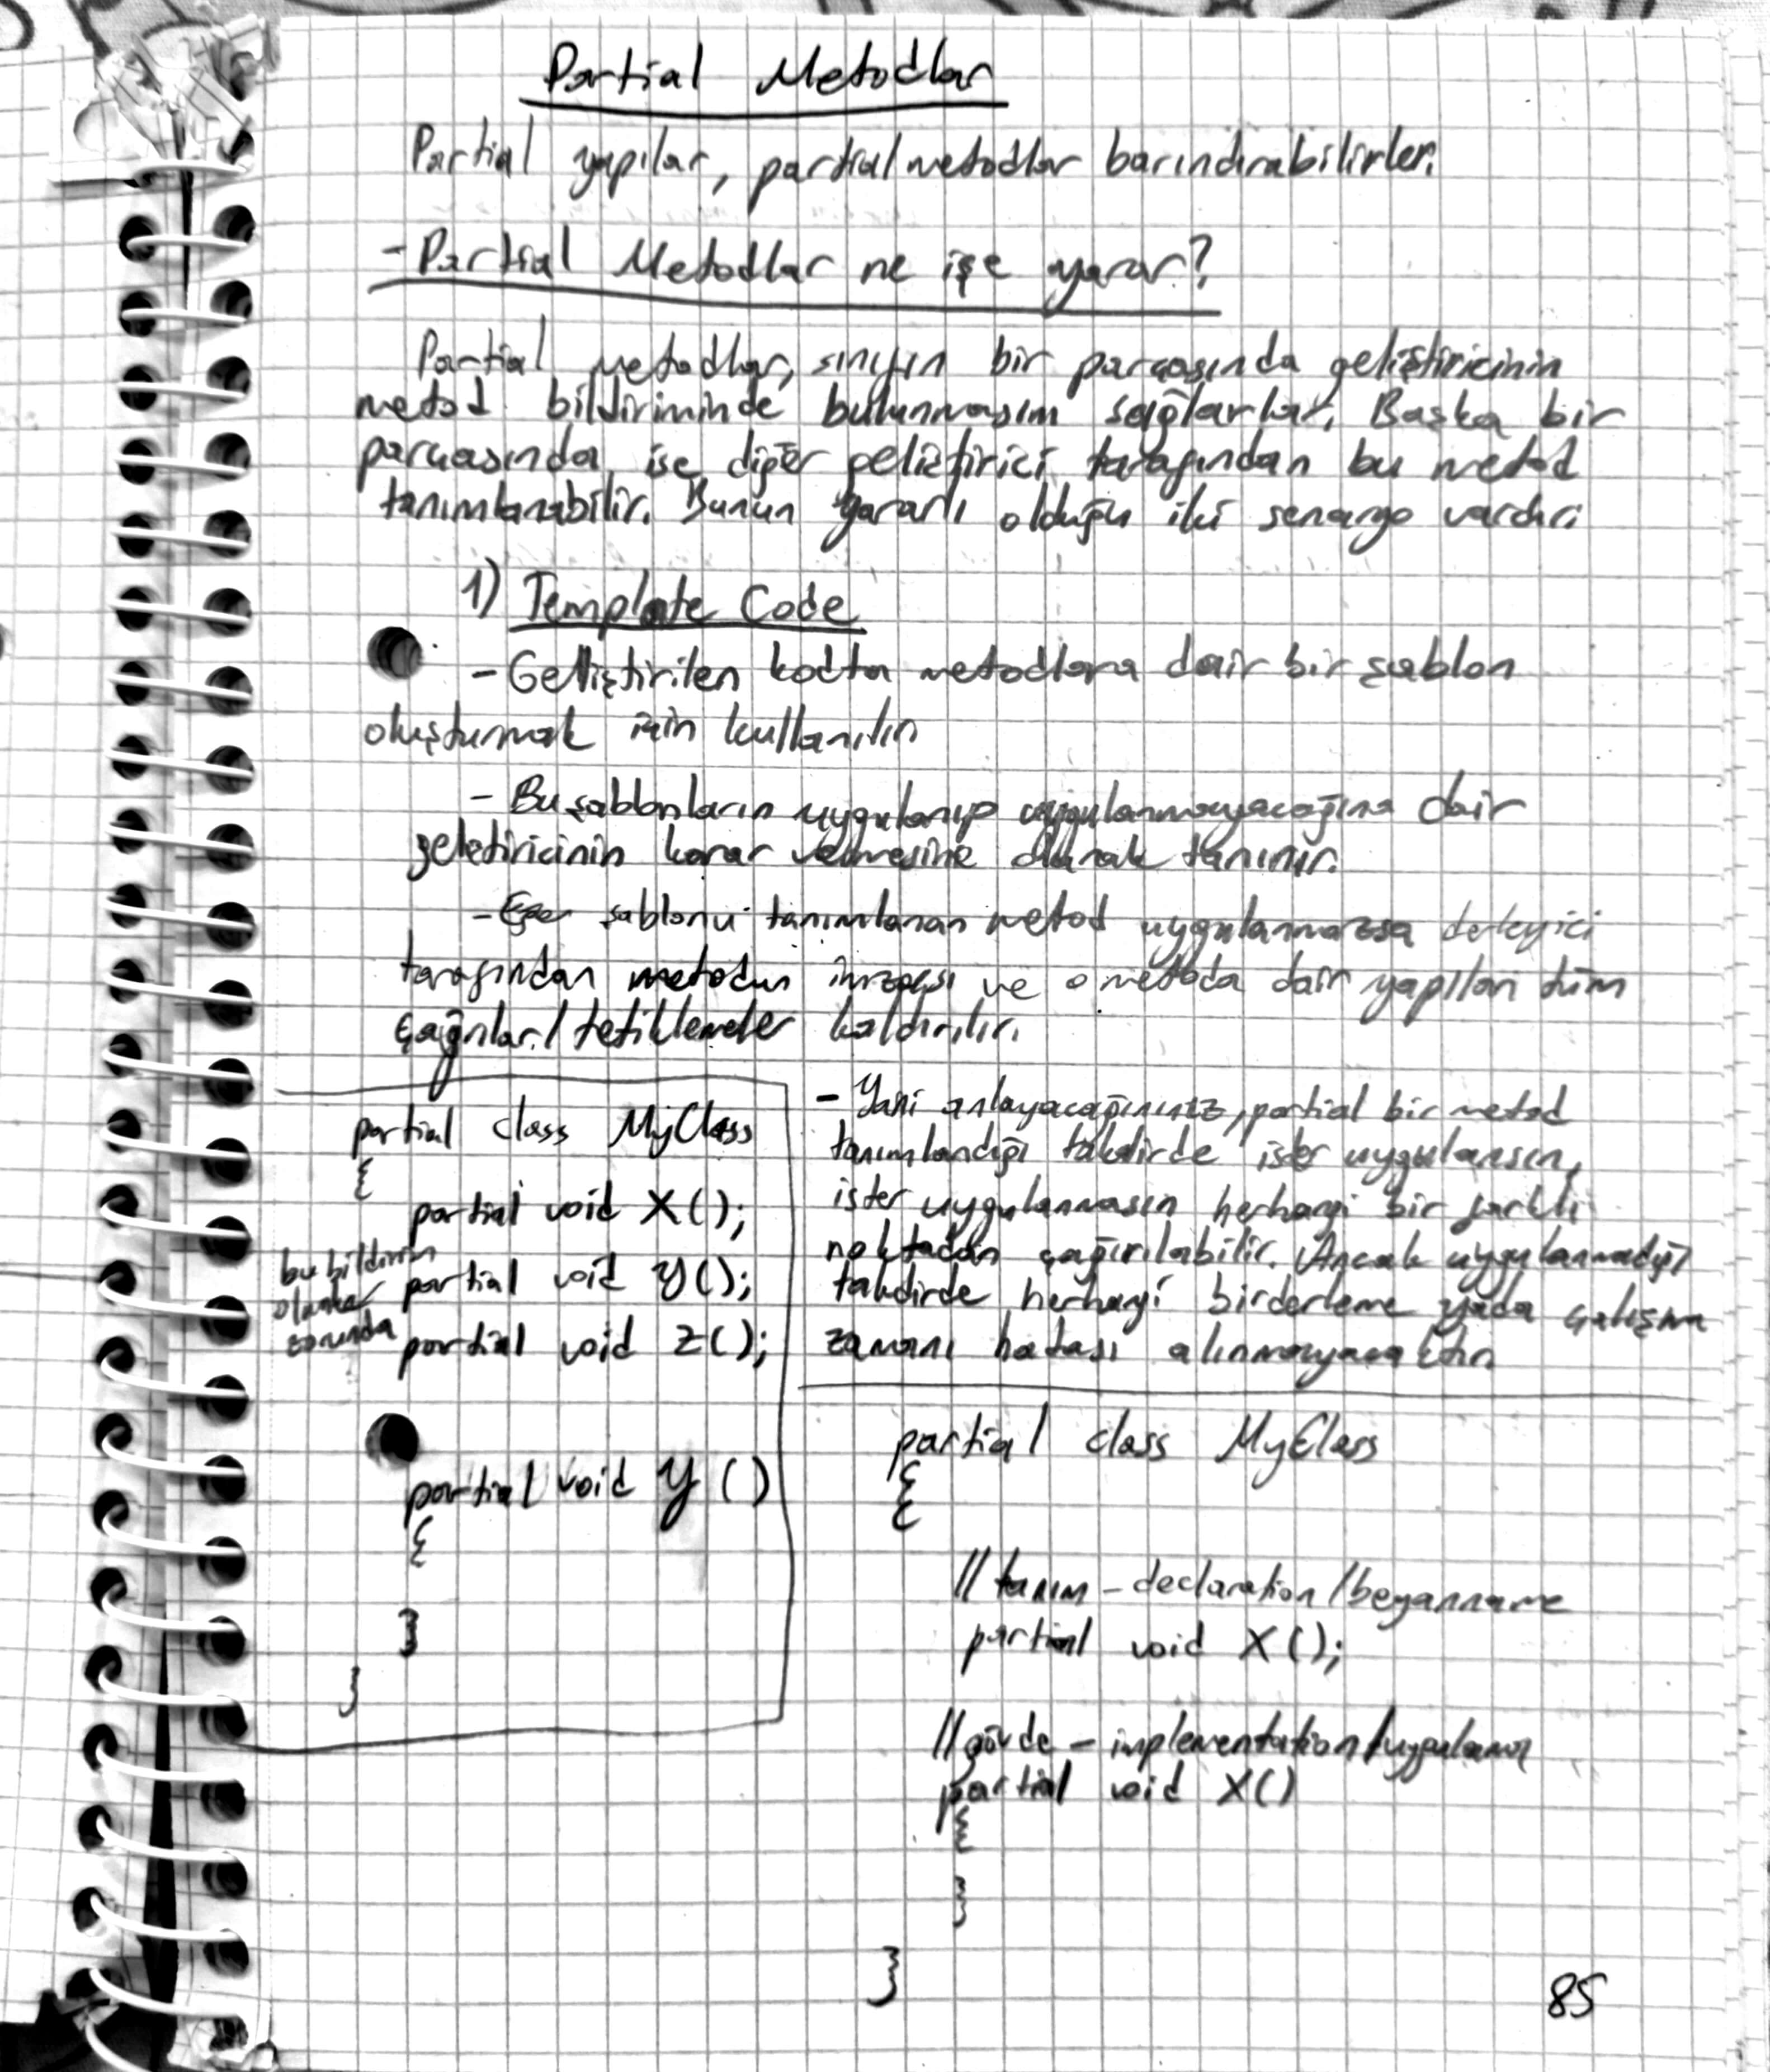 Partial Metodlar
Partial yapılar, partial metodlar barındırabilirler.
- Partial Metodlar ne işe yarar?
Partial metodlar, sınıfın bir parçasında geliştiricinin
metod bildiriminde bulunmasını sağlarlar. Başka bir
parçasında ise diğer geliştirici tarafından bu metod
tanımlanabilir. Bunun yararlı olduğu iki senaryo vardır:
1) Template Code
- Geliştirilen kodta metodlara dair bir şablon
oluşturmak için kullanılır.
- Bu şablonların uygulanıp uygulanmayacağına dair
geliştiricinin karar vermesine olanak tanınır.
- Eğer şablonu tanımlanan metod uygulanmazsa derleyici
tarafından metodun imzası ve o metoda dair yapılan tüm
çağrılar/tetiklemeler kaldırılır.
partial class MyClass
{
partial void X();
bu bildirim
olmak
zorunda
partial void Y();
partial void Z();
partial void Y()
{
}
}
- Yani anlayacağınız, partial bir metod
tanımlandığı takdirde ister uygulansın,
ister uygulanmasın herhangi bir farklı
noktadan çağırılabilir. Ancak uygulanmadığı
takdirde herhangi bir derleme yada çalışma
zamanı hatası alınmayacaktır.
partial class MyClass
{
// tanım - declaration/beyanname
partial void X();
// gövde - implementation/uygulama
partial void X()
{
}
}
85